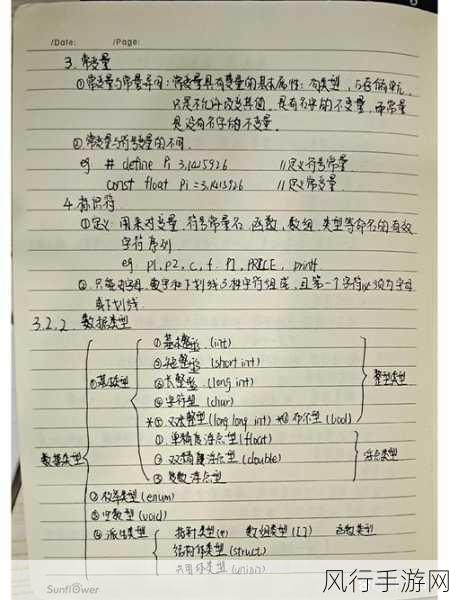 /Date: /Page:
3. 常变量
①常变量与常量异同：常变量具有变量的基本属性：有类型，占存储单元，
只是不允许改变其值，是有名字的不变量，而常量
是没有名字的不变量.
②常变量与符号常量的不同.
eg # define Pi 3.1415926 //定义符号常量
const float Pi = 3.1415926 //定义常变量
4. 标识符
①定义：用来对变量，符号常量名，函数，数组，类型等命名的有效
字符序列
eg. p1, p2, c, f, PI, PRICE, printf
②只能由字母、数字和下划线3种字符组成，且第一个字符必须为字母
或下划线.
3.2.2. 数据类型
①基本整型 (int)
②短整型 (short int)
①基本类型 ③长整型 (long int) 整型类型
④字符型 (char)
*⑤双长整型 (long long int) *⑥布尔型 (bool)
①单精度浮点型 (float)
②双精度浮点型 (double) 浮点类型
数据类型 ③复数浮点型
②枚举类型 (enum)
③空类型 (void)
④派生类型 指针类型 (*) 数组类型 ([]) 函数类型
结构体类型 (struct)
共用体类型 (union)
Sunflower
风行手游网